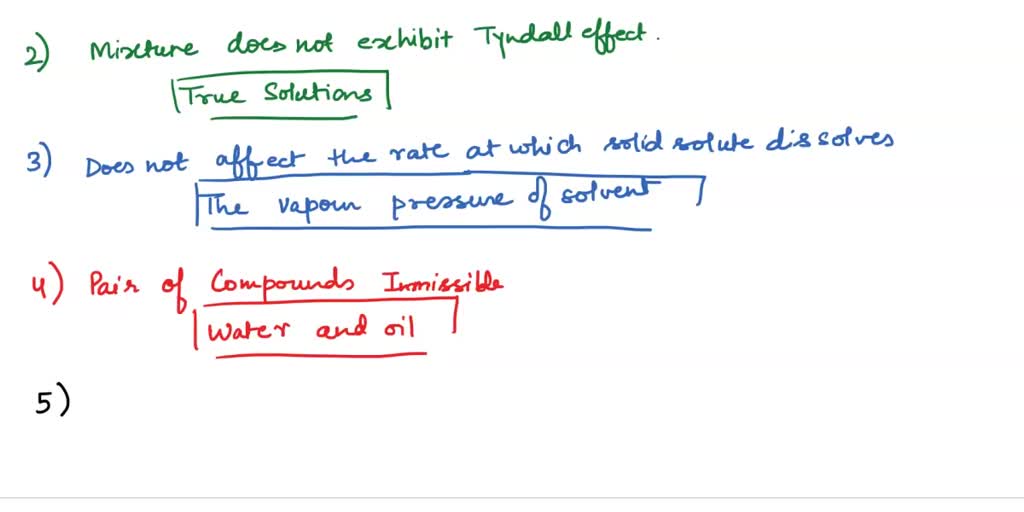 2) Mixture does not exhibit Tyndall effect.
True Solutions
3) Does not affect the rate at which solid solute dissolves
The vapour pressure of solvent
4) Pair of Compounds Immissible
Water and oil
5)